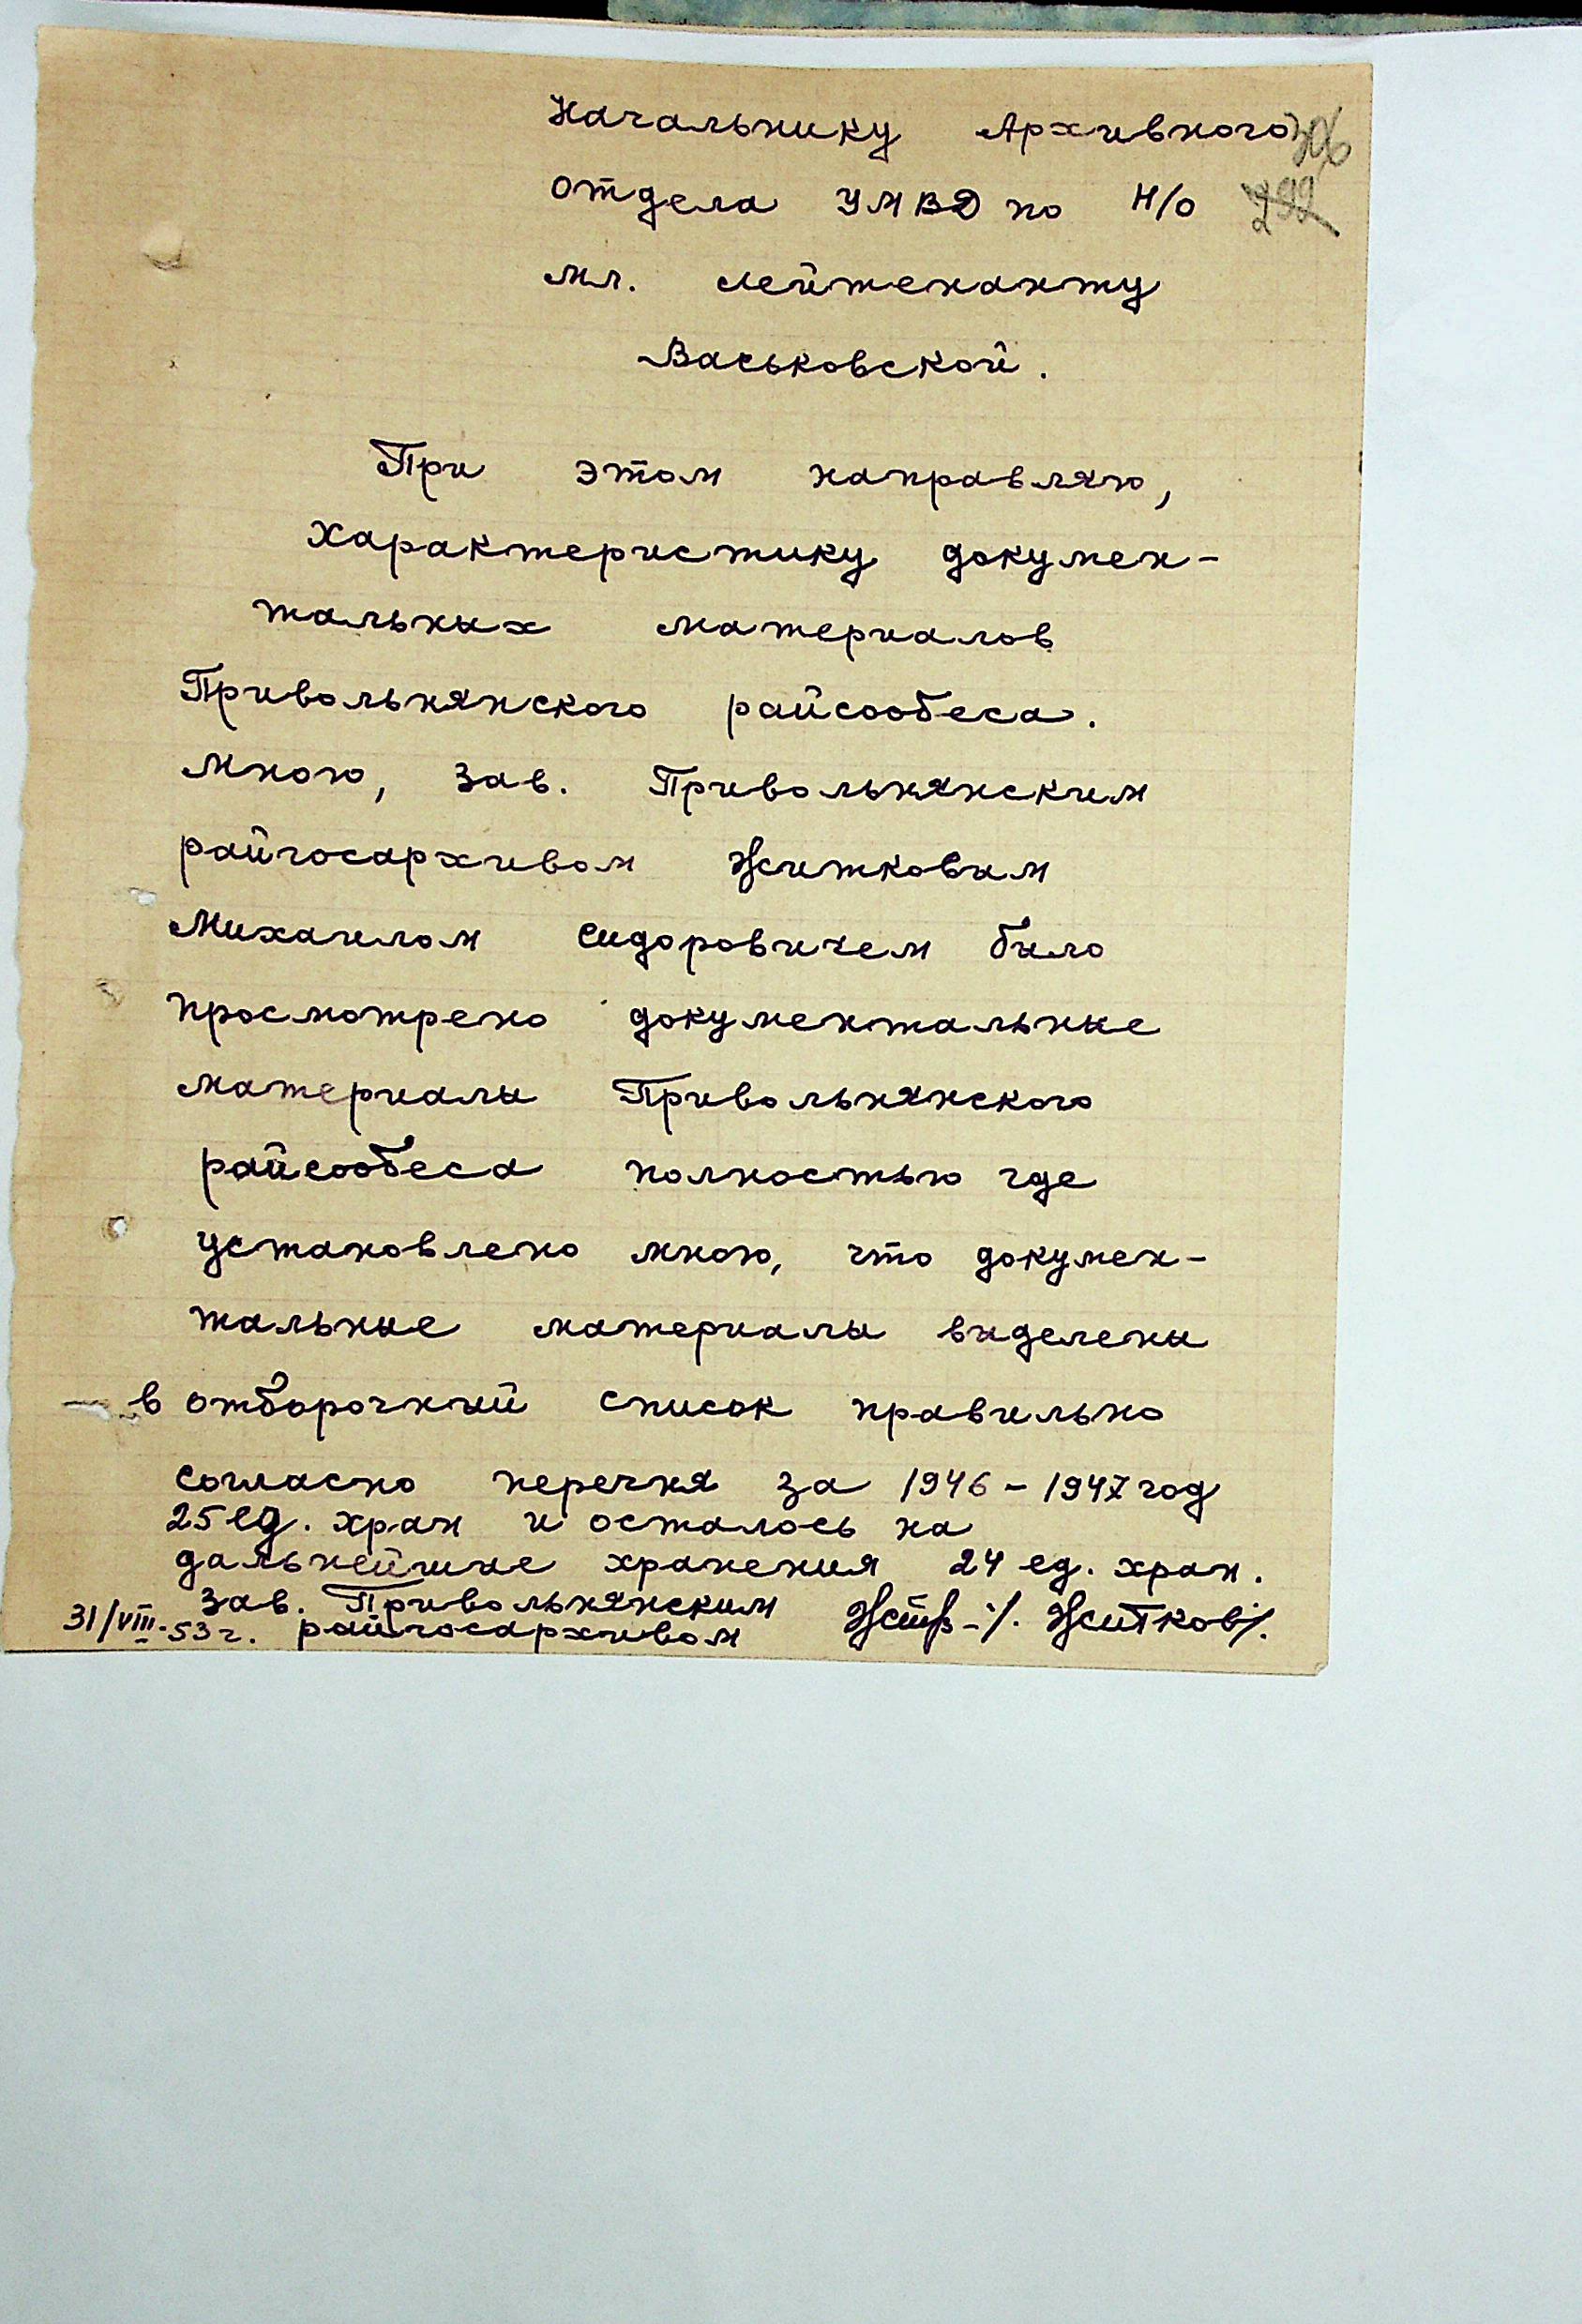 Начальнику Архивного 306
отдела УМВД по Н/о 292
мл. лейтенанту
Васьковской.
При этом направляю,
характеристику докумен-
тальных материалов
Привольнянского райсообеса.
Мною, зав. Привольнянским
райгосархивом Житковым
Михаилом Сидоровичем было
просмотрено документальные
материалы Привольнянского
райсообеса полностью где
установлено мною, что докумен-
тальные материалы выделены
в отборочный список правильно
согласно перечня за 1946-1947 год
25 ед. хран и осталось на
дальнейшие хранения 24 ед. хран.
Зав. Привольнянским
31/VIII-53 г. райгосархивом /. Житков /.